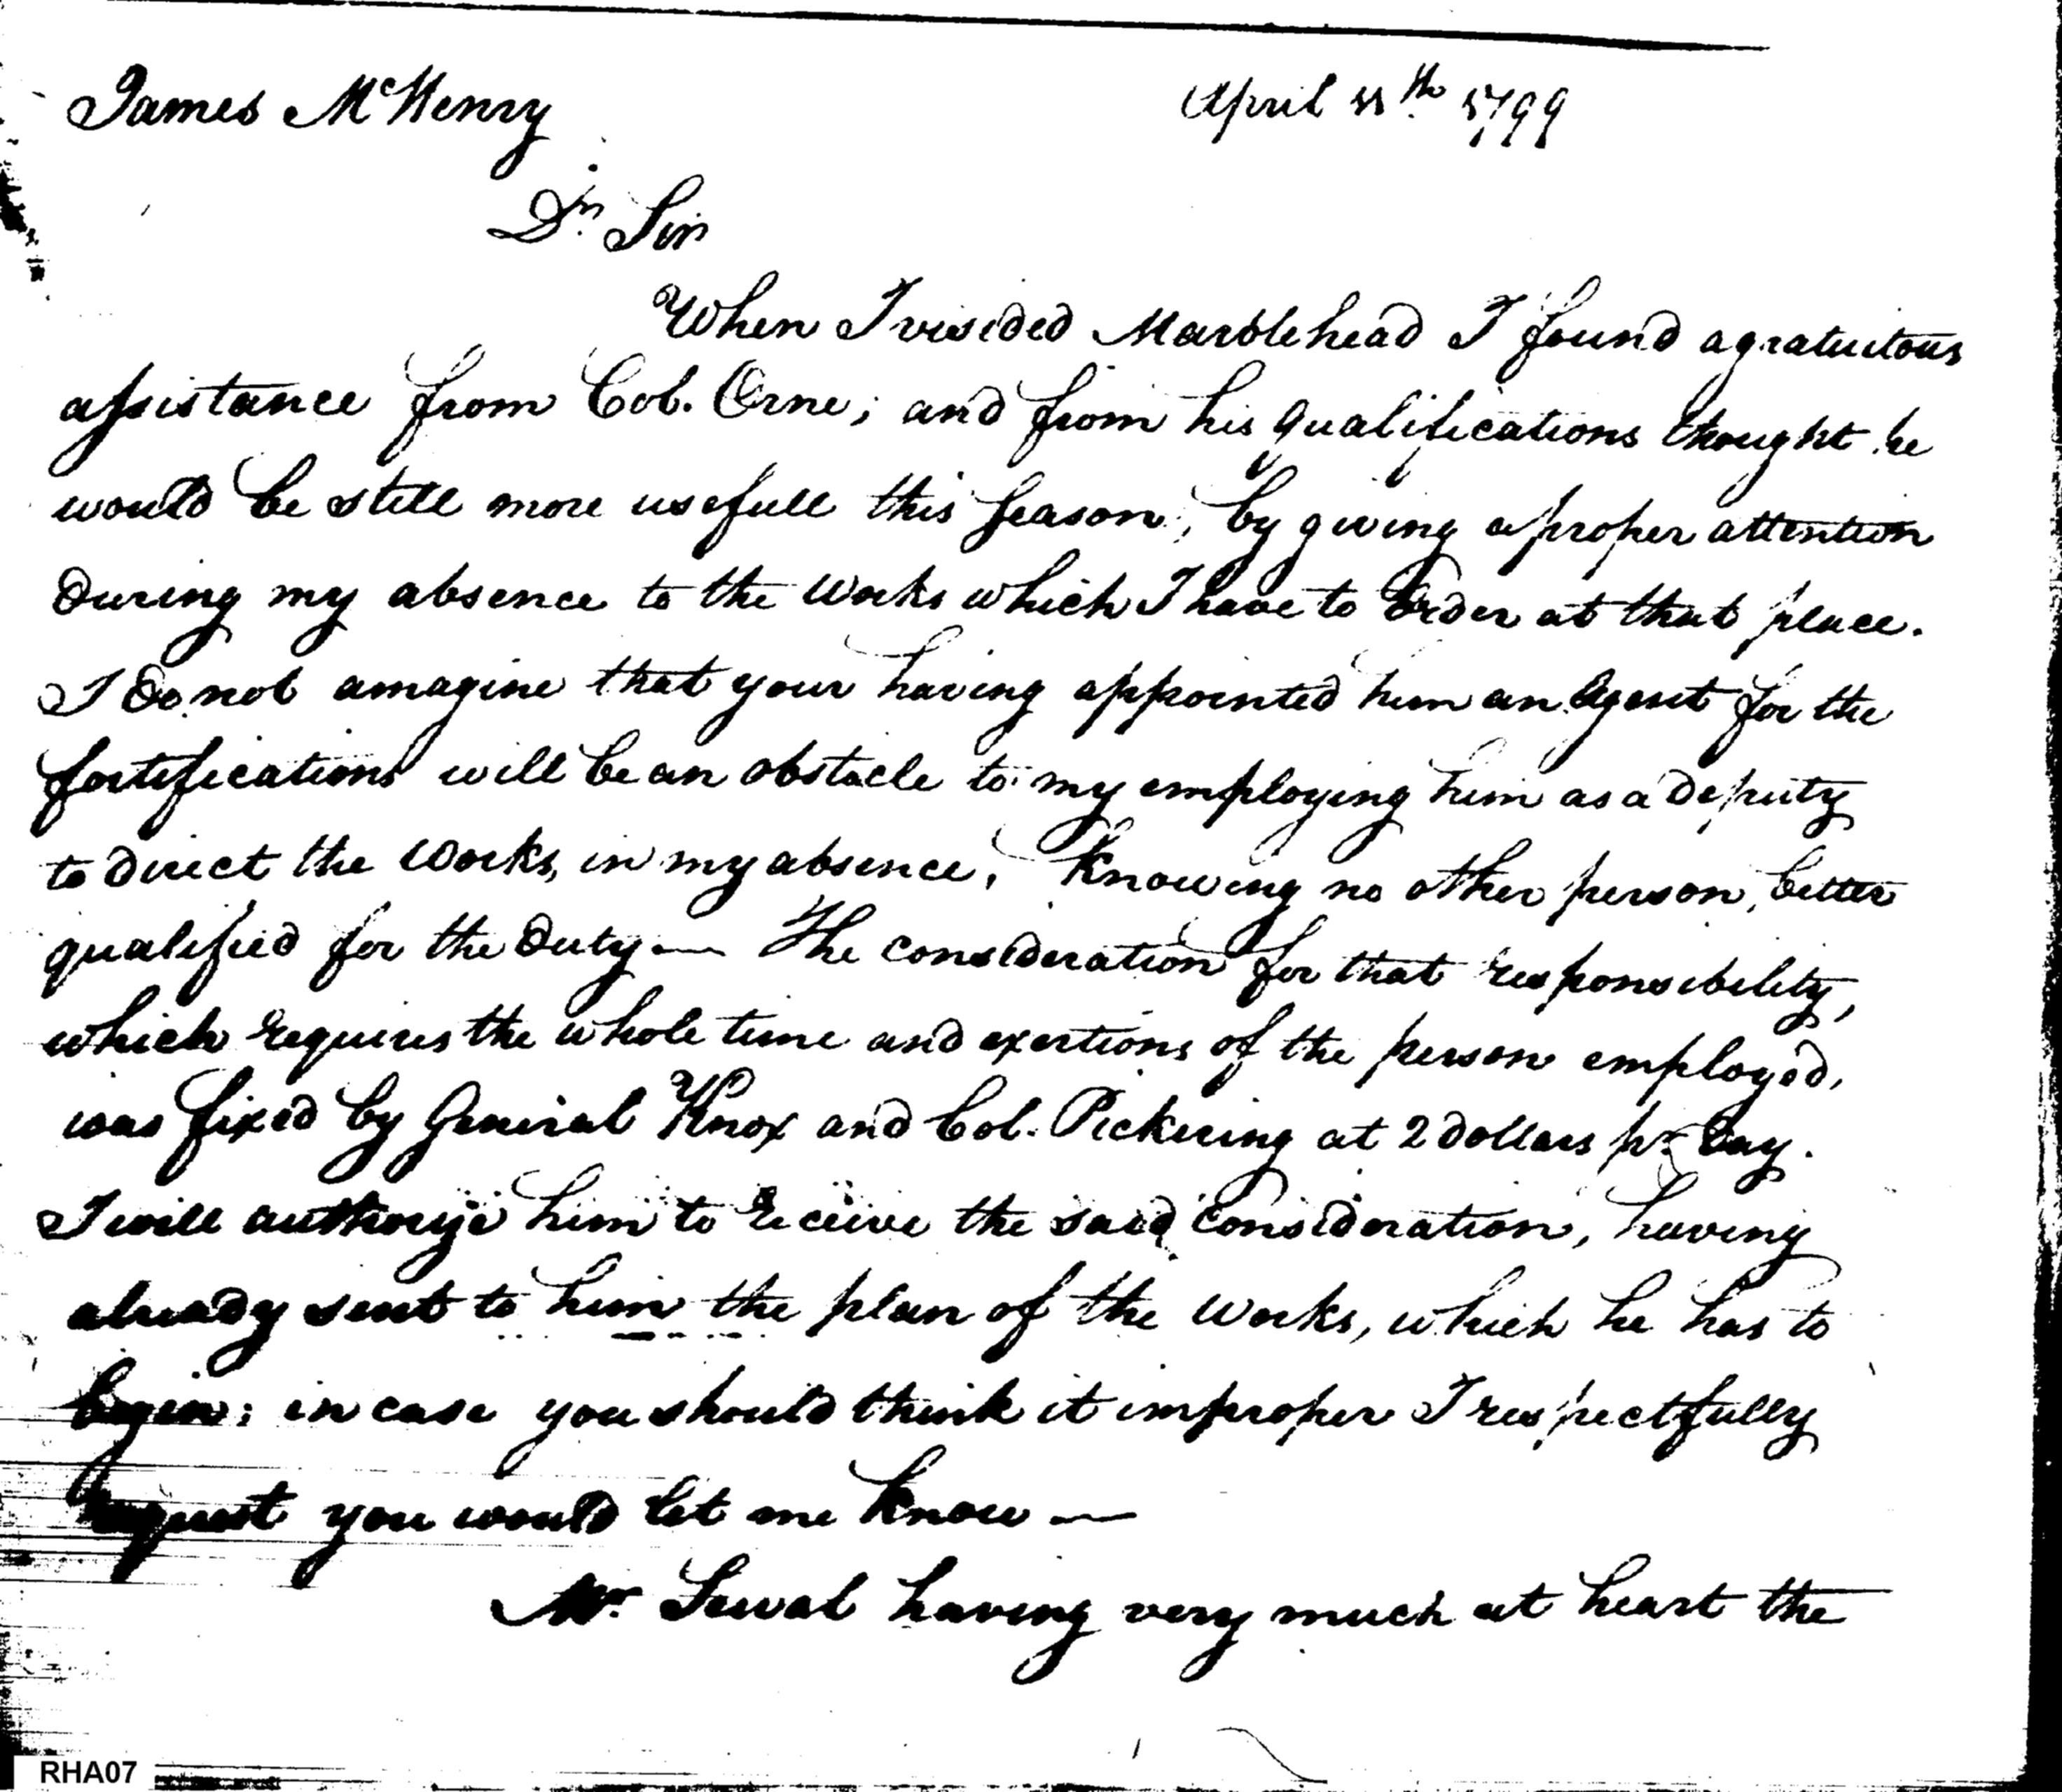 James McHenry April 11th 1799
Dr Sir
When I visided Marblehead I found a gratuitous
assistance from Col. Orne; and from his qualifications thought he
would be still more usefull this Season, by giving a proper attention
During my absence to the Works which I have to order at that place.
I Do not amagine that your having appointed him an Agent for the
fortifications will be an obstacle to my employing him as a deputy
to direct the Works, in my absence, Knowing no other person, better
qualified for the Duty — The consideration for that responsibility,
which requires the whole time and exertions of the person employed,
was fixed by General Knox and Col. Pickering at 2 dollars pr Day.
I will authorize him to receive the said consideration, having
already sent to him the plan of the works, which he has to
begin; in case you should think it improper I respectfully
request you would let me know —
Mr. Sewal having very much at heart the
RHA07